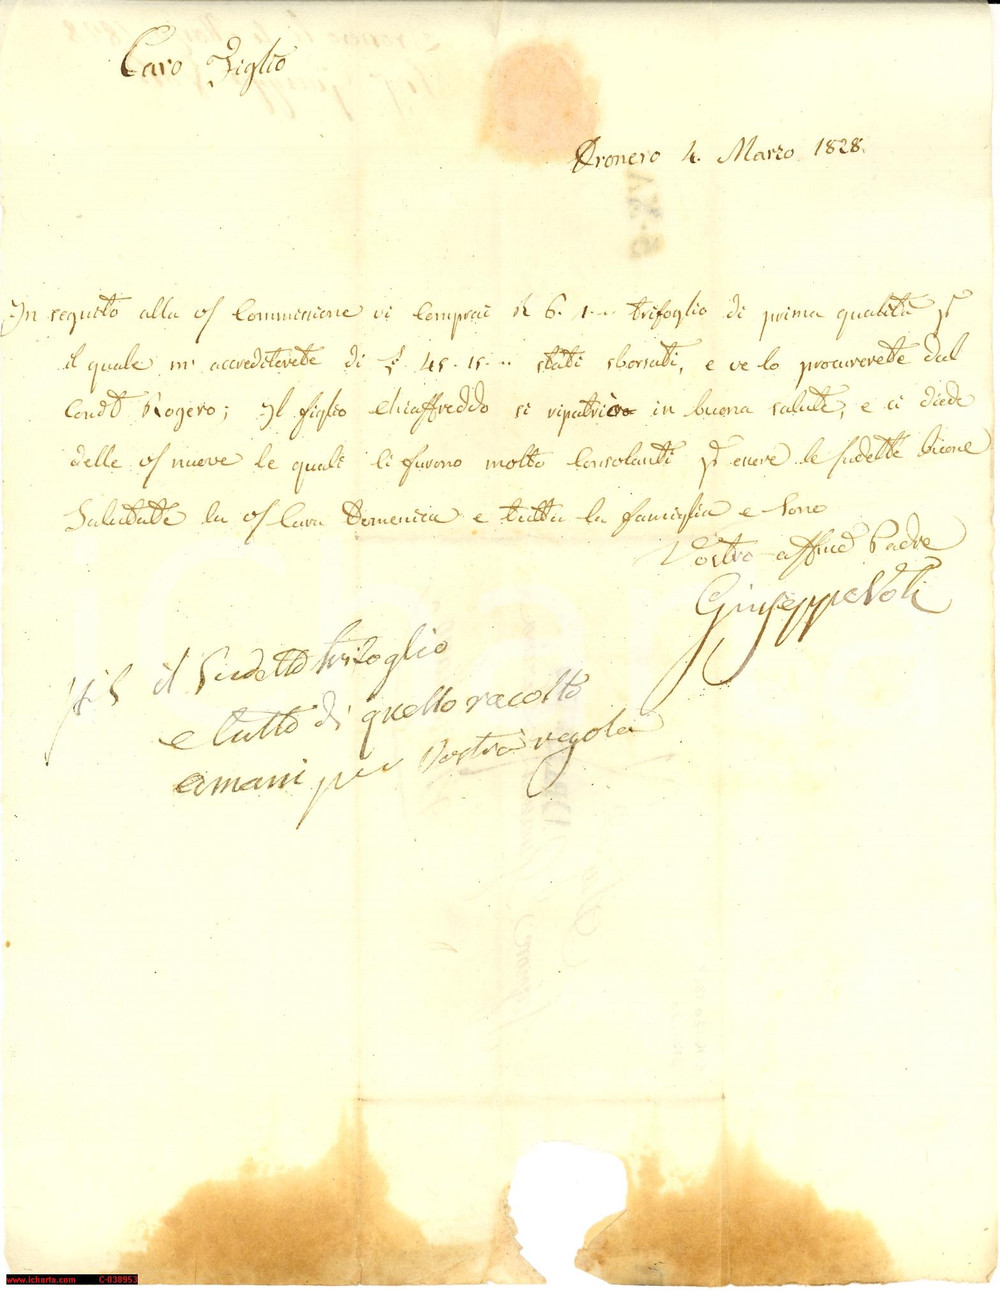 Caro Figlio
Dronero 4. Marzo 1828.
In seguito alla vs Commissione vi Comprai R 6. 1.... trifoglio di prima qualità pr
il quale m' accrediterete di £ 45. 15... stati sborsati, e ve lo procurerete dal
Condt Rogero; Il figlio Chiaffreddo si ripatriò in buona salute, e ci diede
delle vs nuove le quali ci furono molto Consolanti pr essere le sudette buone
Salutate la vs Cara Domenica e tutta la famiglia e sono
Vostro affmo Padre
Giuseppe Voli
il Sudetto trifoglio
e tutto di quello racolto
amani per Vostra regola
www.icharta.com C-038953